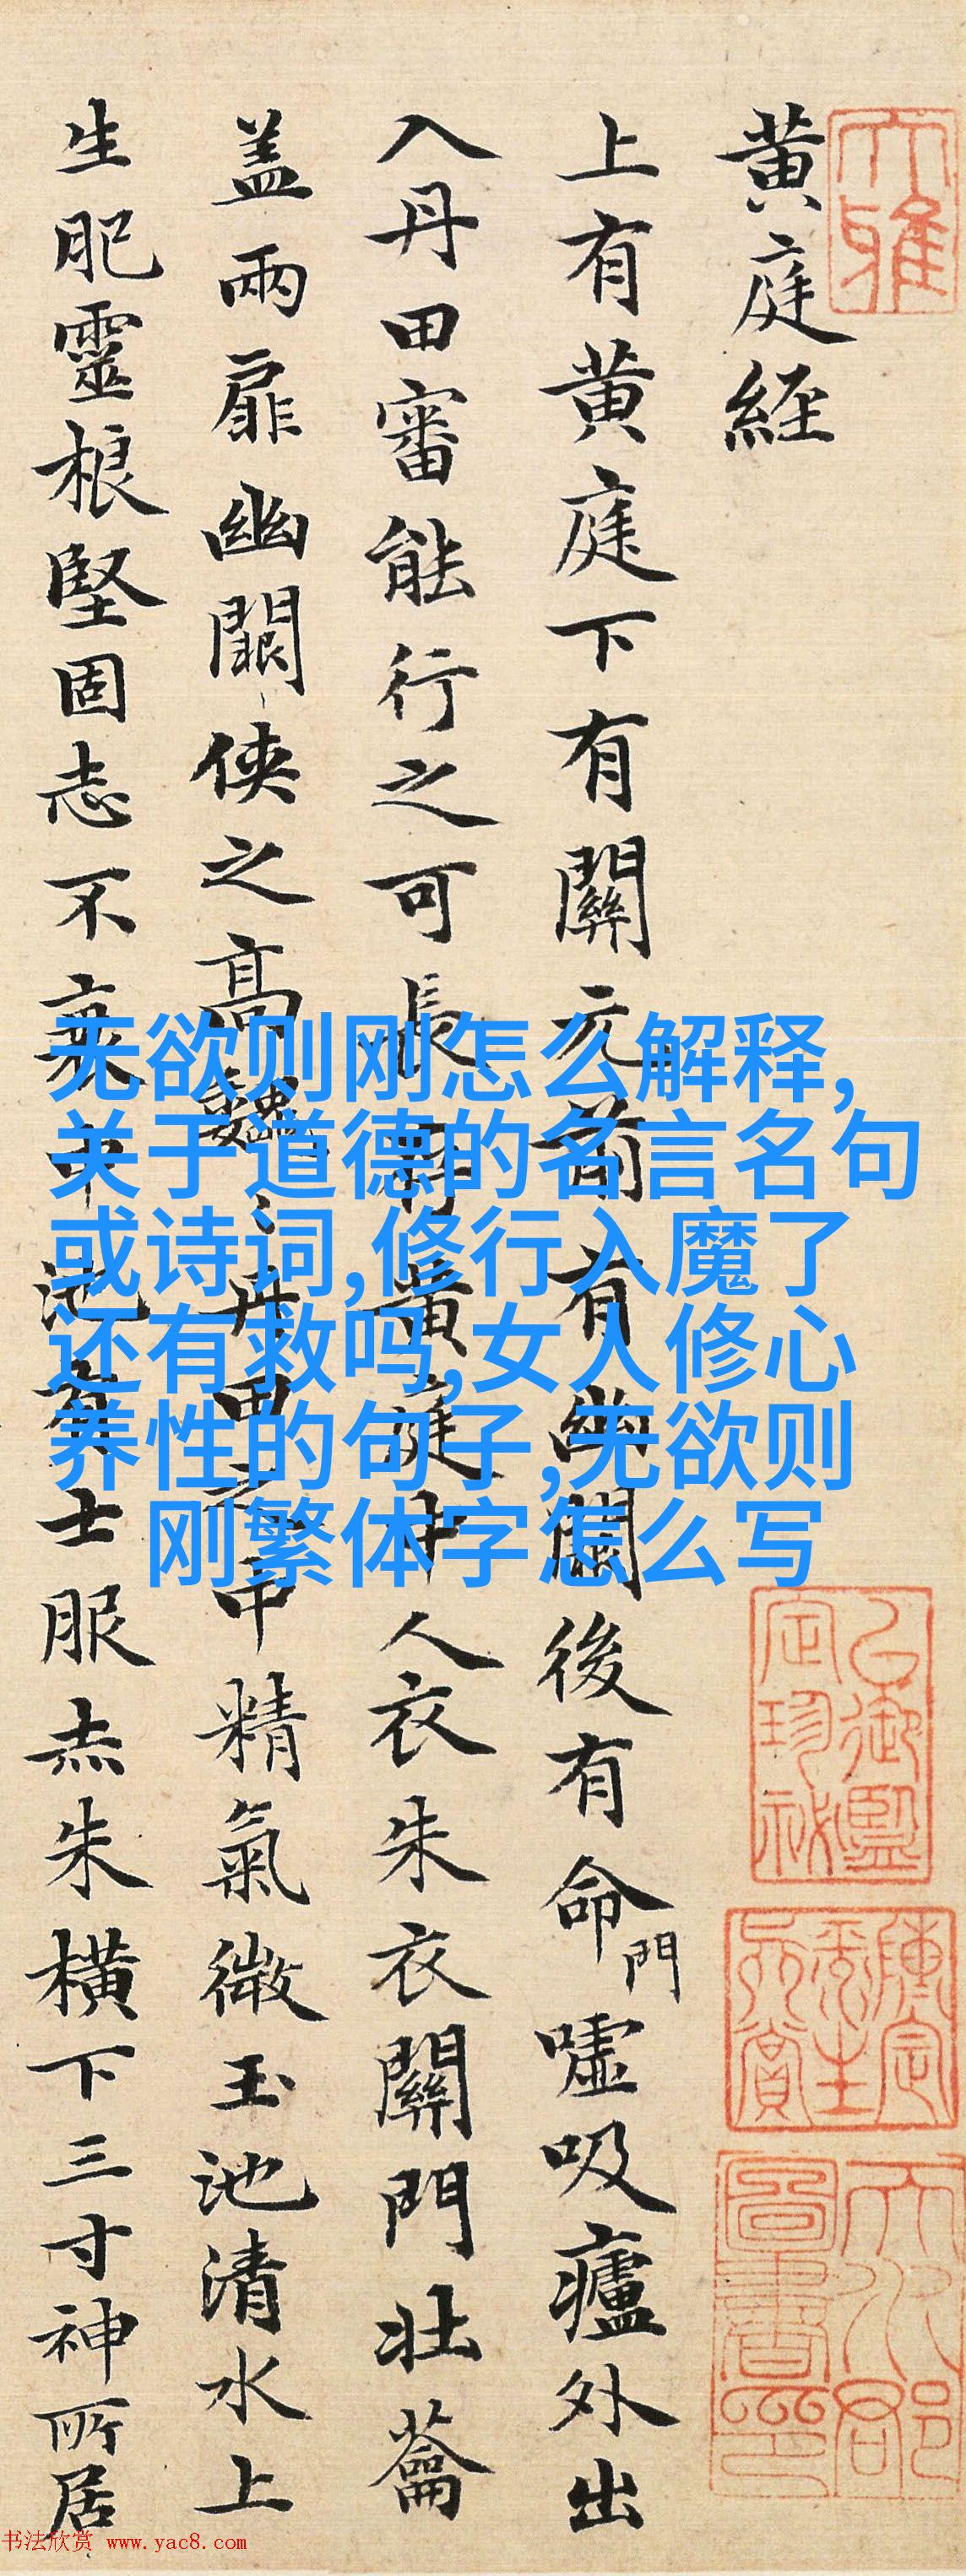 大雅
黄庭経
上有黄庭下有關元前有幽闕後有命門嘘吸廬外出
入丹田審能行之可長存黄庭中人衣朱衣關門壮蘥
盖兩扉幽闕侠之高巍〻丹田之中精氣微玉池清水上
生肥靈根堅固志不衰中池有士服赤朱横下三寸神所居
无欲则刚怎么解释,
关于道德的名言名句
或诗词,修行入魔了
还有救吗,女人修心
养性的句子,无欲则
刚繁体字怎么写
书法欣赏 www.yac8.com